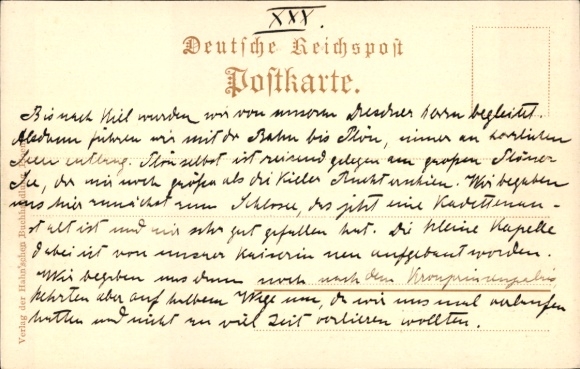 XXX.
Deutsche Reichspost
Postkarte.
Bis nach Kiel wurden wir von unserem Dresdner Herrn begleitet.
Alsdann fuhren wir mit der Bahn bis Plön, immer an herrlichen
Seen entlang. Plön selbst ist reizend gelegen am großen Plöner
See, der mir noch größer als die Kieler Bucht erschien. Wir begaben
uns hier zunächst zum Schlosse, das jetzt eine Kadettenan-
stalt ist und mir sehr gut gefallen hat. Die kleine Kapelle
dabei ist von unserer Kaiserin neu aufgebaut worden.
Wir begaben uns dann noch nach dem Kronprinzenpalais
kehrten aber auf halbem Wege um, da wir uns mal verlaufen
hatten und nicht zu viel Zeit verlieren wollten.
Verlag der Hahn'schen Buchhandlung